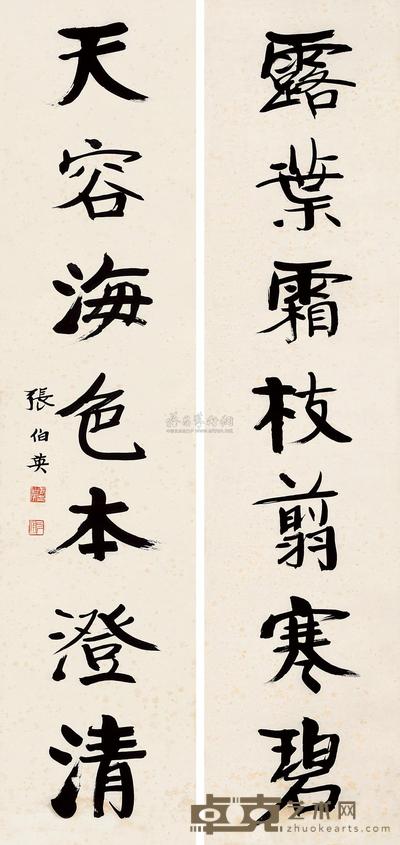 露葉霜枝剪寒碧
天容海色本澄清
張伯英
卓克艺术网
zhuokearts.com